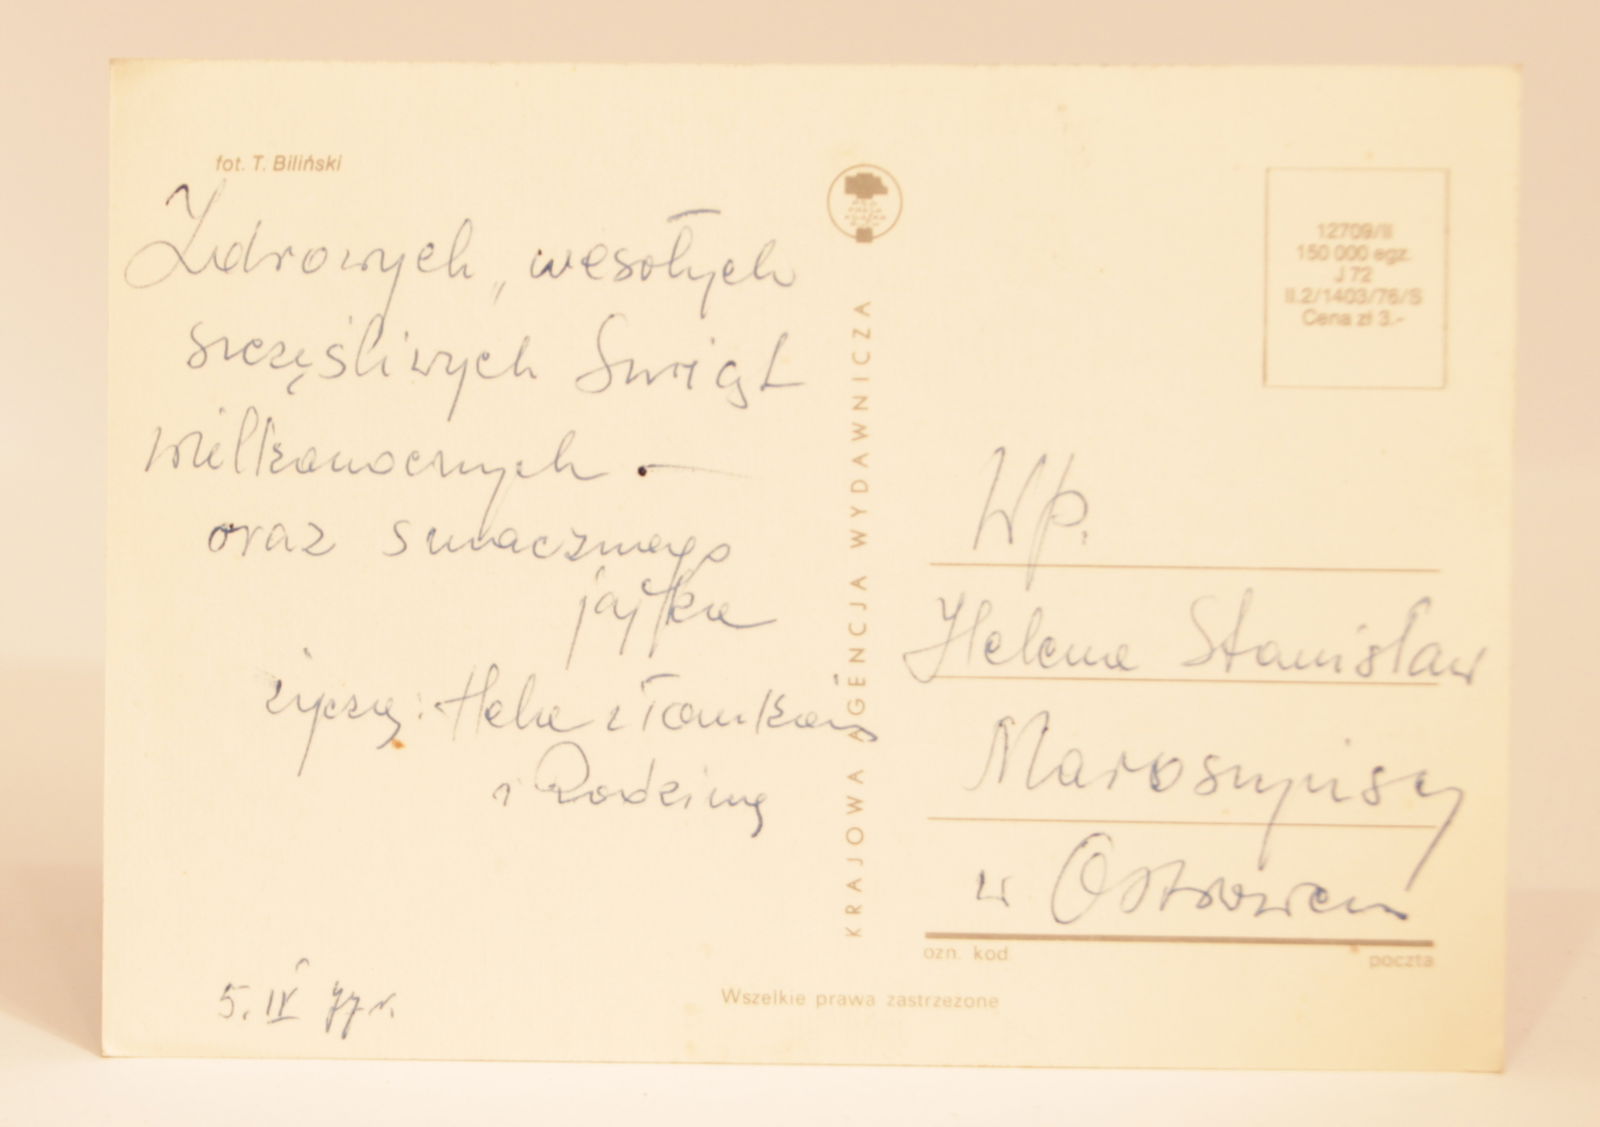 fot. T. Biliński
Zdrowych, wesołych
szczęśliwych Swiąt
wielkanocnych . —
oraz smacznego
jajka
życzą: Hela
i Rodziną
5. IV 77 r.
KRAJOWA AGENCJA WYDAWNICZA
12709/II
150 000 egz.
J 72
II.2/1403/76/S
Cena zł 3.-
Wp.
Helena Stanisław
w Ostrowcu
ozn. kod
poczta
Wszelkie prawa zastrzeżone